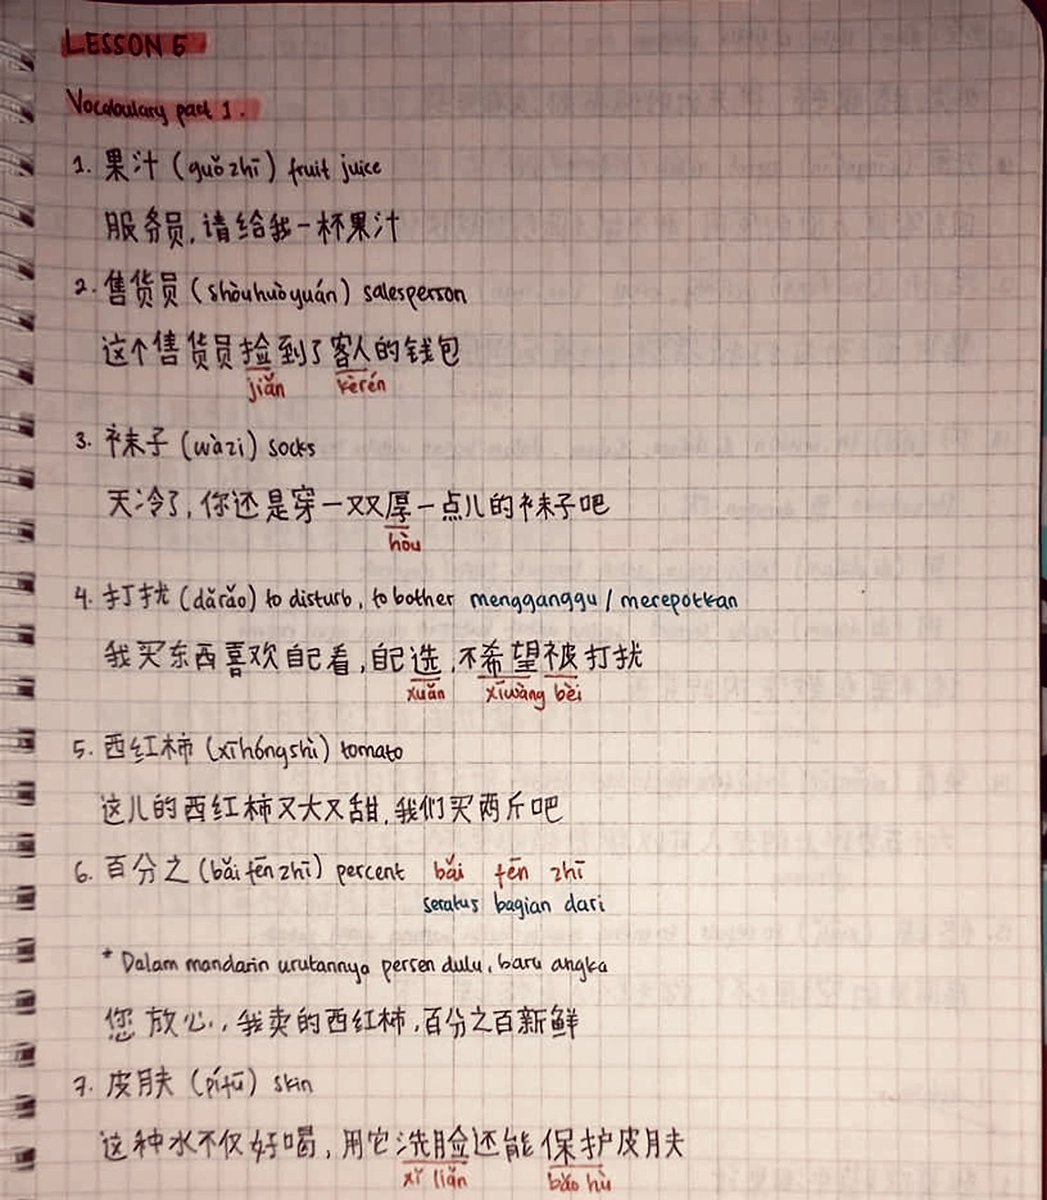 LESSON 5
Vocabulary part 1.
1. 果汁 (guǒzhī) fruit juice
服务员, 请给我一杯果汁
2. 售货员 (shòuhuòyuán) salesperson
这个售货员捡到了客人的钱包
jiǎn kèrén
3. 袜子 (wàzi) socks
天冷了, 你还是穿一双厚一点儿的袜子吧
hòu
4. 打扰 (dǎrǎo) to disturb, to bother mengganggu / merepotkan
我买东西喜欢自己看, 自己选, 不希望被打扰
xuǎn xīwàng bèi
5. 西红柿 (xīhóngshì) tomato
这儿的西红柿又大又甜, 我们买两斤吧
6. 百分之 (bǎifēnzhī) percent bǎi fēn zhī
seratus bagian dari
* Dalam mandarin urutannya persen dulu, baru angka
您放心, 我卖的西红柿, 百分之百新鲜
7. 皮肤 (pífū) skin
这种水不仅好喝, 用它洗脸还能保护皮肤
xǐ liǎn bǎo hù